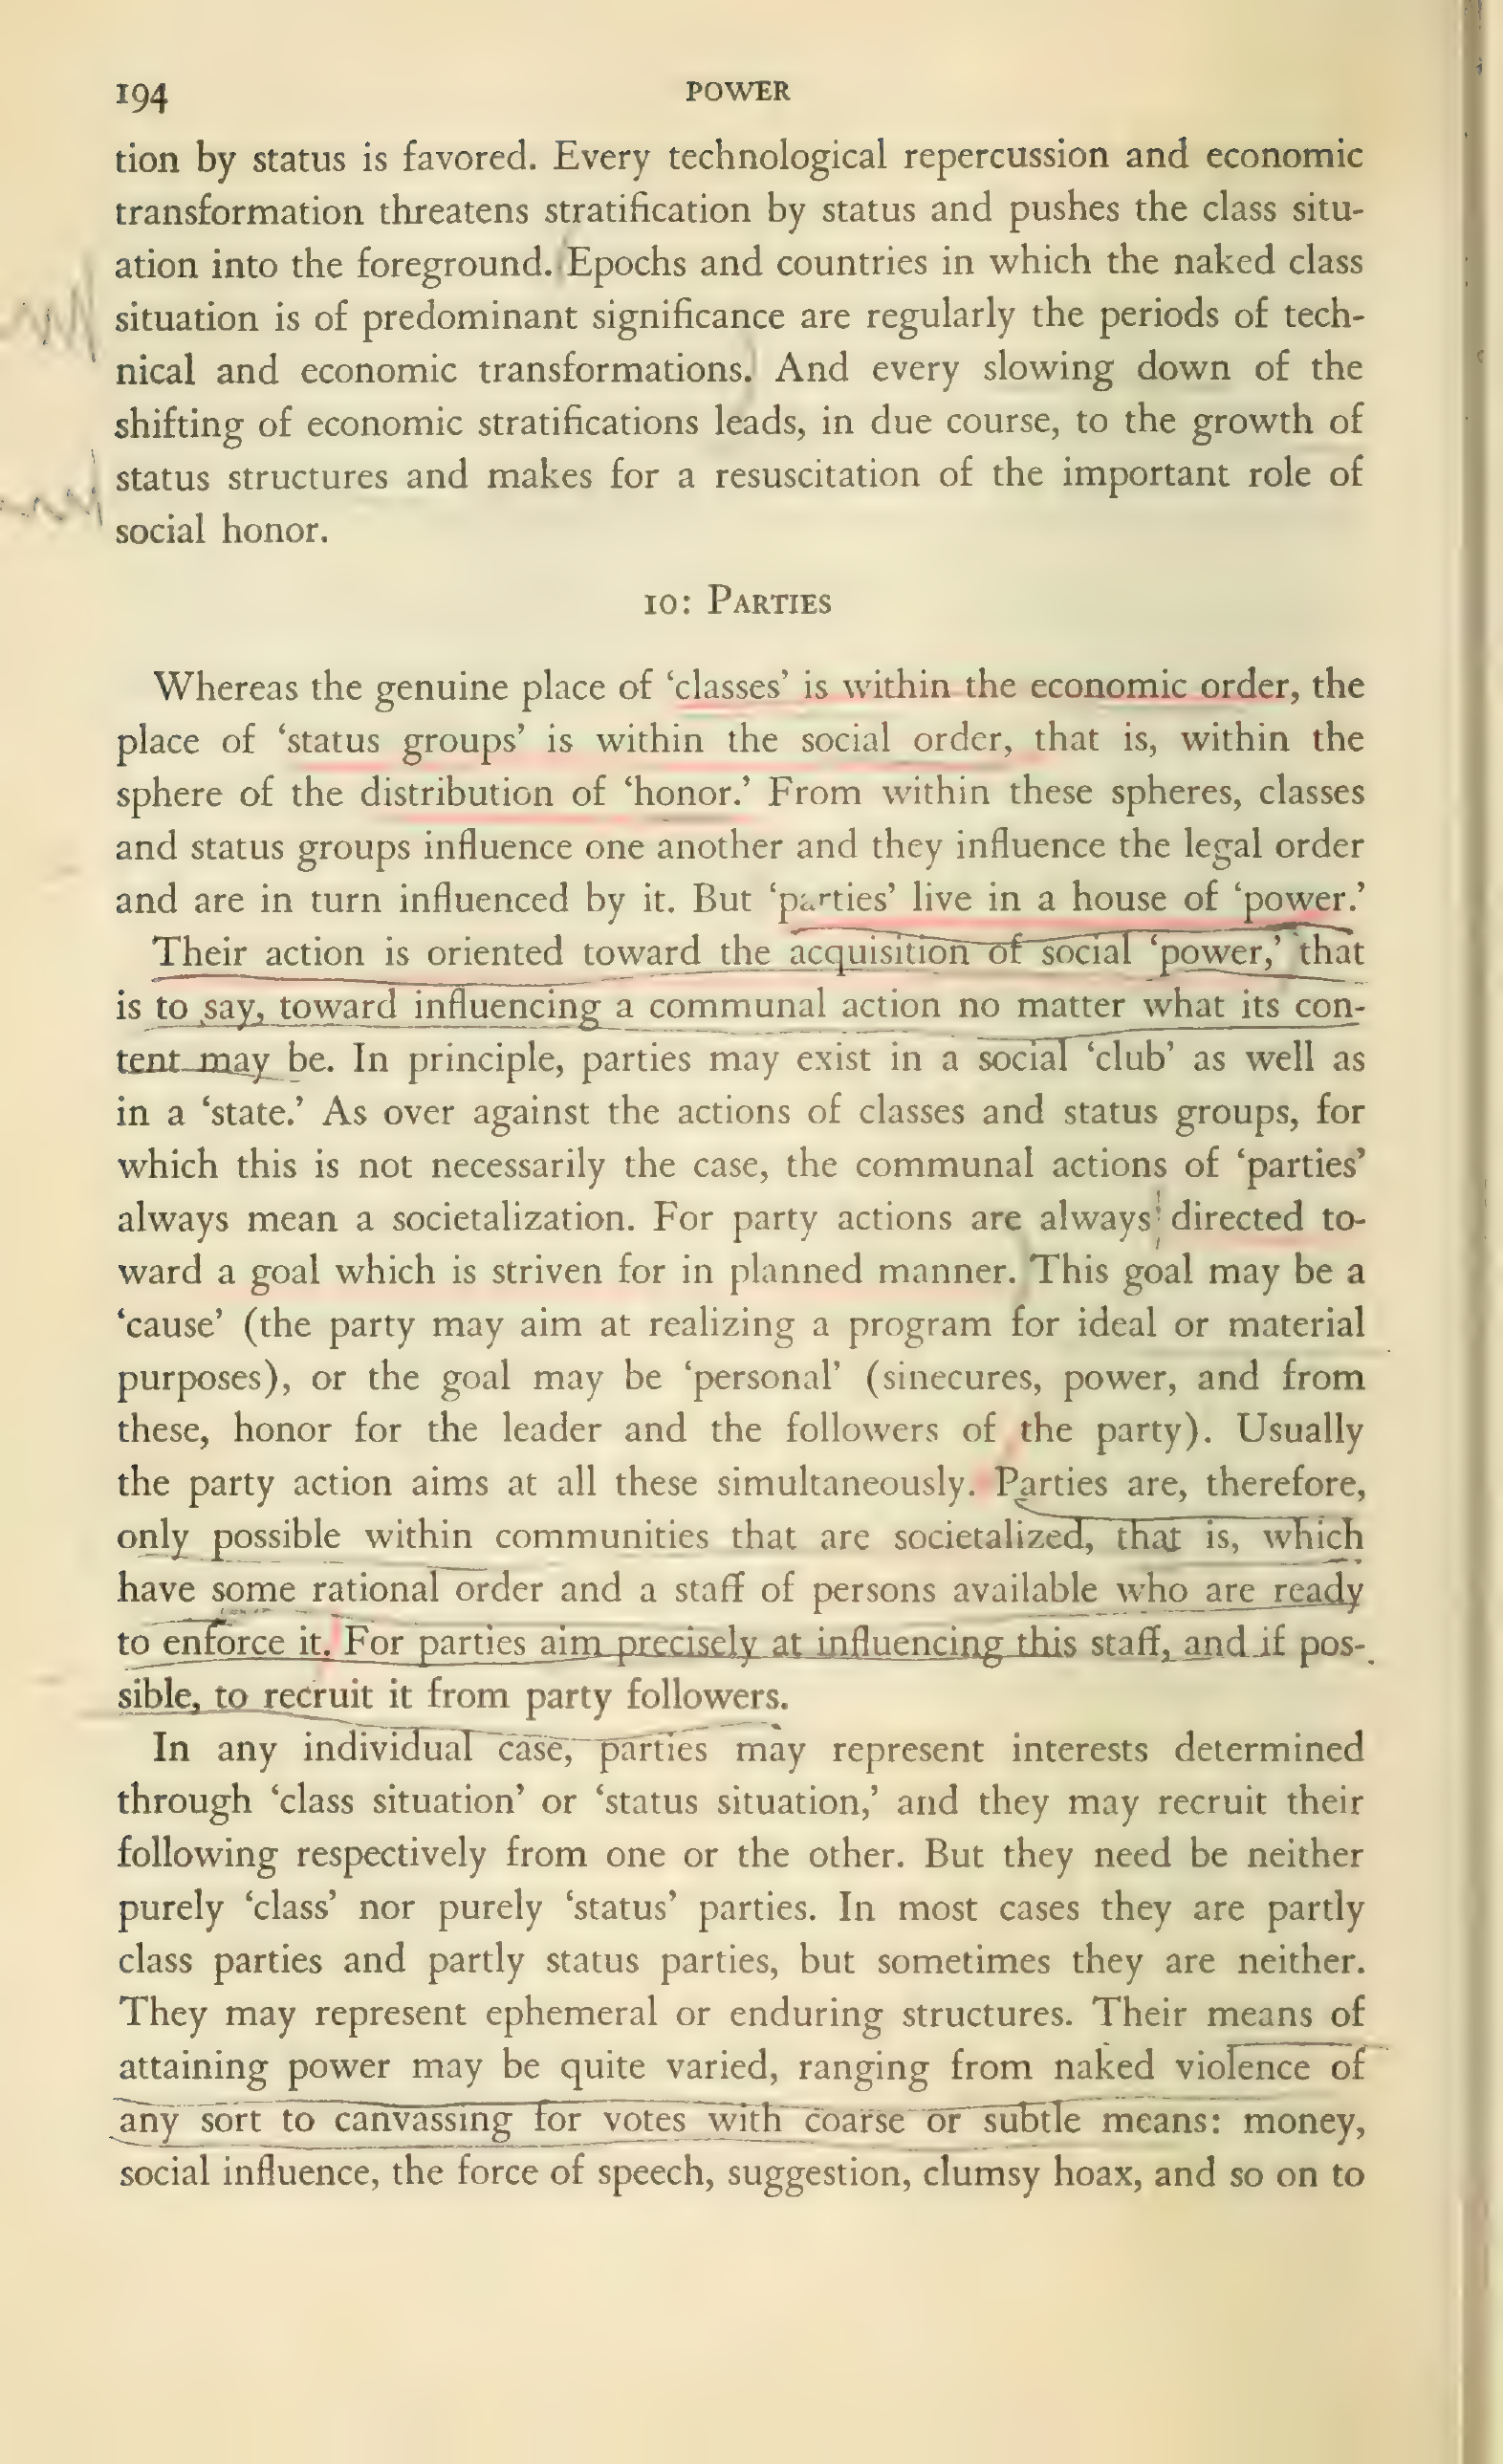 194
POWER
tion by status is favored. Every technological repercussion and economic
transformation threatens stratification by status and pushes the class situ-
ation into the foreground. Epochs and countries in which the naked class
situation is of predominant significance are regularly the periods of tech-
nical and economic transformations. And every slowing down of the
shifting of economic stratifications leads, in due course, to the growth of
status structures and makes for a resuscitation of the important role of
social honor.
10: Parties
Whereas the genuine place of ‘classes’ is within the economic order, the
place of ‘status groups’ is within the social order, that is, within the
sphere of the distribution of ‘honor.’ From within these spheres, classes
and status groups influence one another and they influence the legal order
and are in turn influenced by it. But ‘parties’ live in a house of ‘power.’
Their action is oriented toward the acquisition of social ‘power,’ that
is to say, toward influencing a communal action no matter what its con-
tent may be. In principle, parties may exist in a social ‘club’ as well as
in a ‘state.’ As over against the actions of classes and status groups, for
which this is not necessarily the case, the communal actions of ‘parties’
always mean a societalization. For party actions are always directed to-
ward a goal which is striven for in planned manner. This goal may be a
‘cause’ (the party may aim at realizing a program for ideal or material
purposes), or the goal may be ‘personal’ (sinecures, power, and from
these, honor for the leader and the followers of the party). Usually
the party action aims at all these simultaneously. Parties are, therefore,
only possible within communities that are societalized, that is, which
have some rational order and a staff of persons available who are ready
to enforce it. For parties aim precisely at influencing this staff, and if pos-
sible, to recruit it from party followers.
In any individual case, parties may represent interests determined
through ‘class situation’ or ‘status situation,’ and they may recruit their
following respectively from one or the other. But they need be neither
purely ‘class’ nor purely ‘status’ parties. In most cases they are partly
class parties and partly status parties, but sometimes they are neither.
They may represent ephemeral or enduring structures. Their means of
attaining power may be quite varied, ranging from naked violence of
any sort to canvassing for votes with coarse or subtle means: money,
social influence, the force of speech, suggestion, clumsy hoax, and so on to